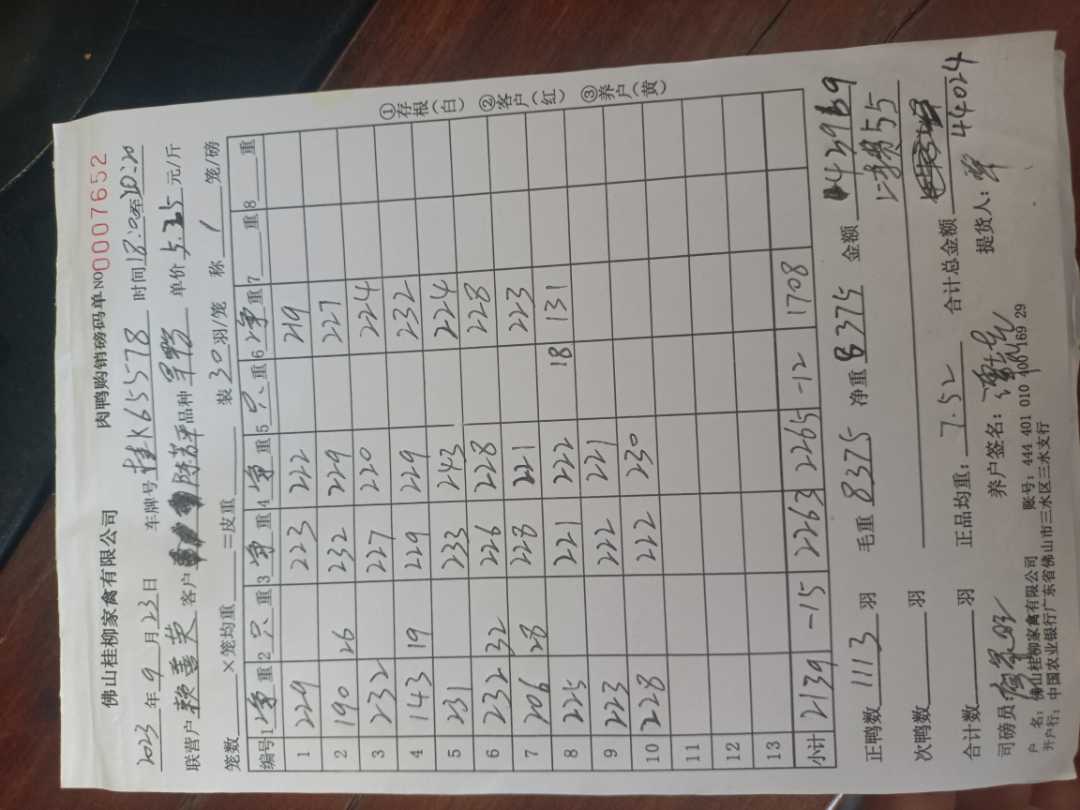 佛山桂柳家禽有限公司 肉鸭购销磅码单 NO 0007652
2023 年 9 月 23 日 车牌号 桂K65578 时间 18:0 至 20:20
联营户 赖善英 客户 品种 单价 5.25 元/斤
笼数 ×笼均重 =皮重 装 30 羽/笼 称 1 笼/磅
编号 1 净 重 2 只 重 3 净 重 4 净 重 5 只 重 6 净 重 7 重 8 重
1 229 223 222 219
2 190 26 232 229 227
3 232 227 220 224
4 143 19 229 229 232
5 231 233 243 224
6 232 32 226 228 228
7 206 28 228 221 223
8 225 221 222 18 131
9 223 222 221
10 228 222 230
11
12
13
小计 2139 -15 2263 2265 -12 1708
正鸭数 1113 羽 毛重 8375 净重 8375 金额 43969
次鸭数 羽 55
合计数 羽 正品均重: 7.52 合计总金额 44024
司磅员: 养户签名: 提货人:
户 名: 佛山桂柳家禽有限公司 账号: 444 401 010 400 169 29
开户行: 中国农业银行广东省佛山市三水区三水支行
①存根(白) ②客户(红) ③养户(黄)